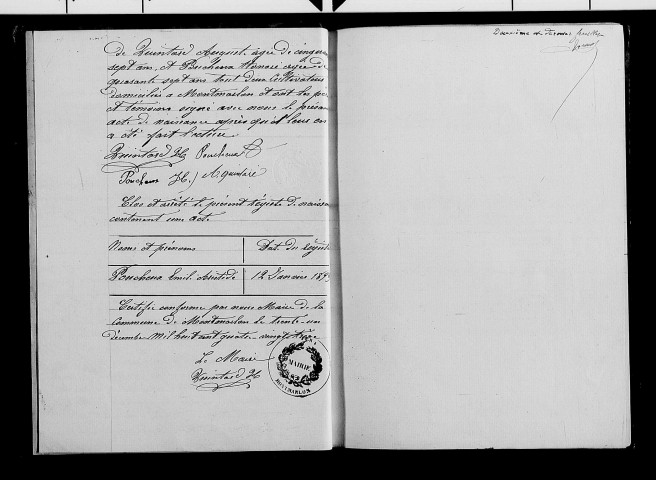 de Quintard Auguste âgé de cinquante
sept ans, et Poucheux Honoré âgé de
quarante sept ans tous deux Cultivateurs
domiciliés à Montmarlon et ont les père
et témoins signé avec nous le présent
acte de naissance après qu'il leur en
a été fait lecture
Quintard H Poucheux
Poucheux H.) A Quintard
Clos et arrêté le présent régistre de naissance
contenant un acte
Noms et prénoms Dat. du régistre
Poucheux Emile Aristide 12 Janvier 189
Certifié conforme par nous Maire de la
Commune de Montmarlon le trente-un
décembre Mil huit cent quatre-vingt treize
Le Maire
Quintard H
MAIRIE
MONTMARLON
Deuxième et dernier feuillet